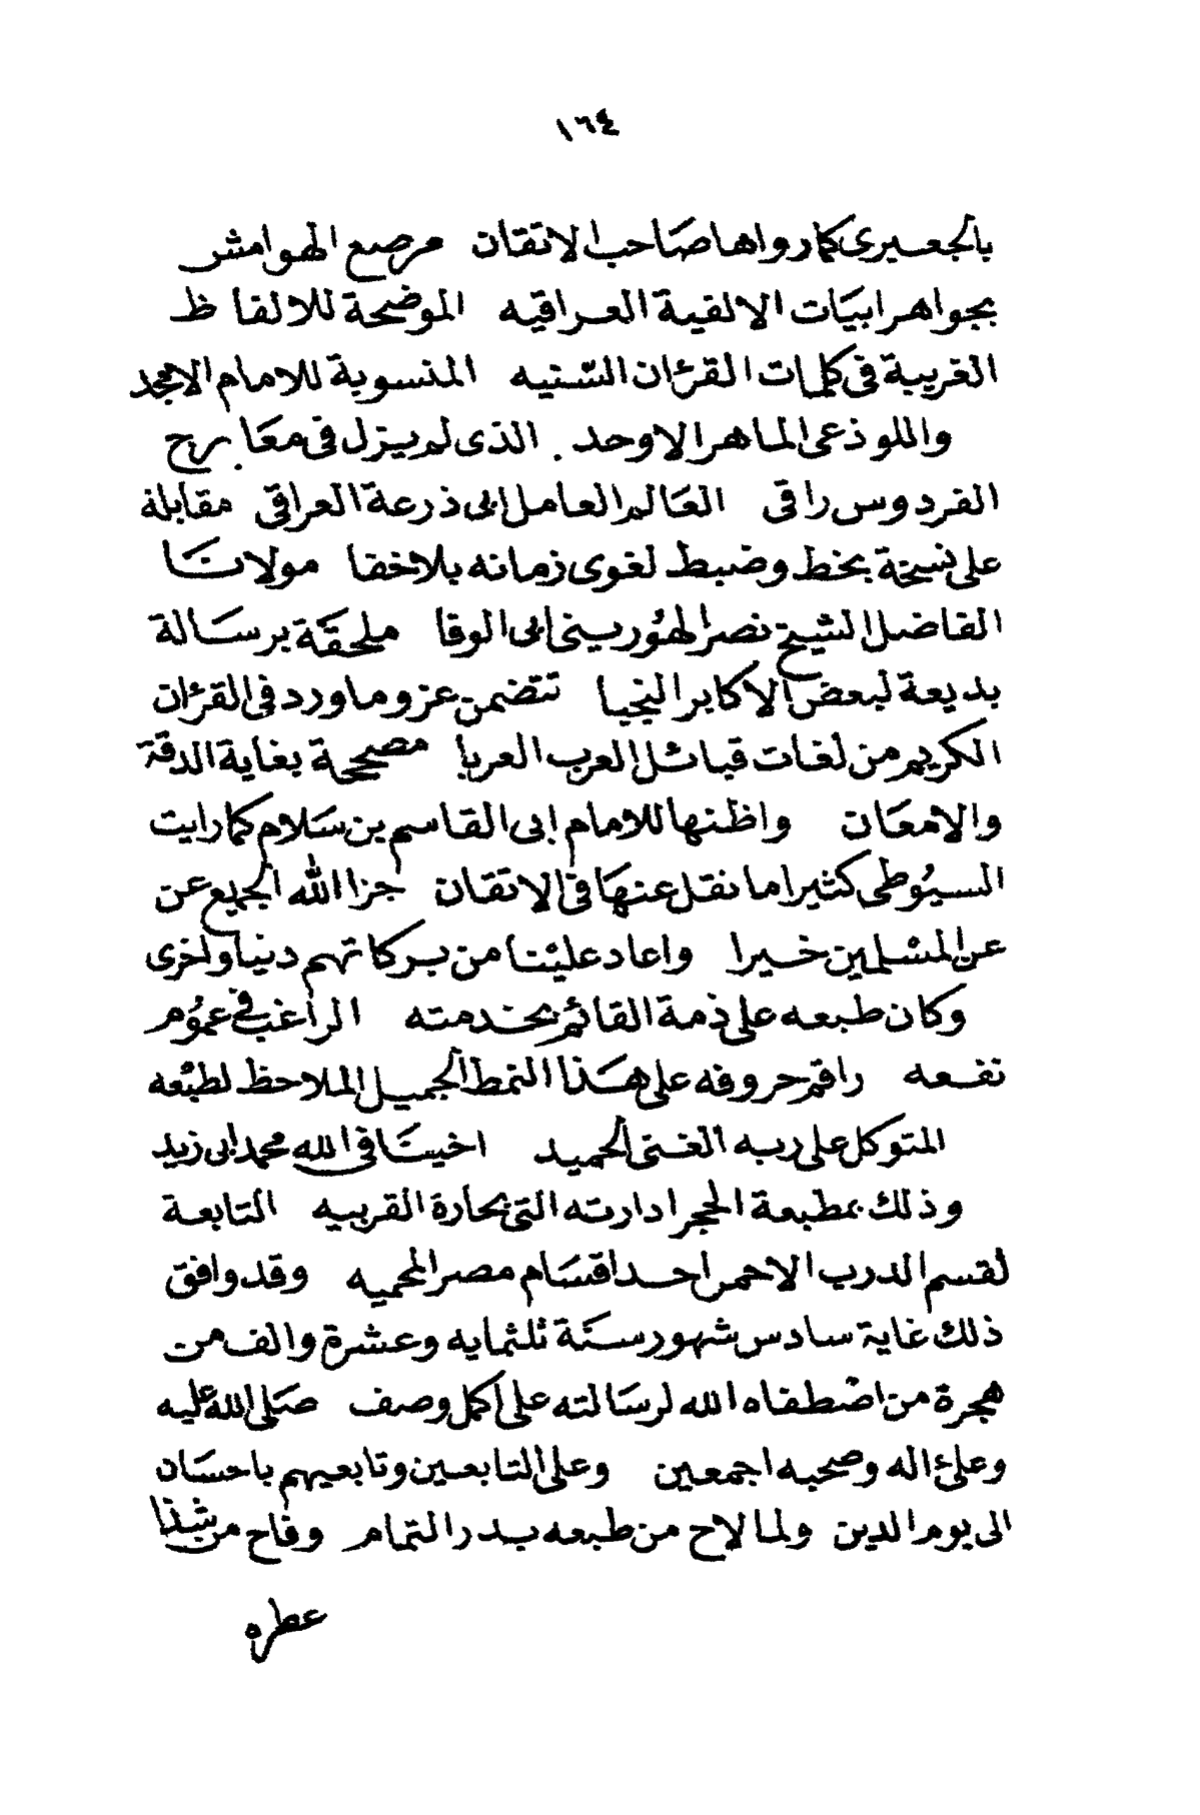 ١٦٤
بالجعبيرى كما رواها صاحب الاتقان مرصع الهوامش
بجواهر ابيات الالفية العراقيه الموضحة للالفاظ
الغريبة فى كلمات القرءان السنيه المنسوبة للامام الامجد
واللوذعى الماهر الاوحد . الذى لم يزل فى معارج
الفردوس راقى العالم العامل ابى ذرعة العراقى مقابلة
على نسخة بخط وضبط لغوى زمانه بلا خفا مولانا
الفاضل الشيخ نصر الهورينى ابى الوفا ملحقة برسالة
بديعة لبعض الاكابر النجبا تتضمن عزو ما ورد فى القرءان
الكريم من لغات قبائل العرب العربا مصححة بغاية الدقة
والامعان واظنها للامام ابى القاسم بن سلام كما رايت
السيوطى كثيرا ما نقل عنها فى الاتقان جزا الله الجميع عن
عن المسلمين خيرا واعاد علينا من بركاتهم دنيا واخرى
وكان طبعه على ذمة القائم بخدمته الراغب فى عموم
نفعه راقم حروفه على هذا النمط الجميل الملاحظ لطبعه
المتوكل على ربه الغنى الحميد اخينا فى الله محمد ابى زيد
وذلك بمطبعة الحجر ادارته التى بحارة القربيه التابعة
لقسم الدرب الاحمر احد اقسام مصر المحميه وقد وافق
ذلك غاية سادس شهور سنة ثلثمايه وعشرة والف من
هجرة من اصطفاه الله لرسالته على اكمل وصف صلى الله عليه
وعلى اله وصحبه اجمعين وعلى التابعين وتابعيهم باحسان
الى يوم الدين ولما لاح من طبعه بدر التمام وفاح من شذا
عطره